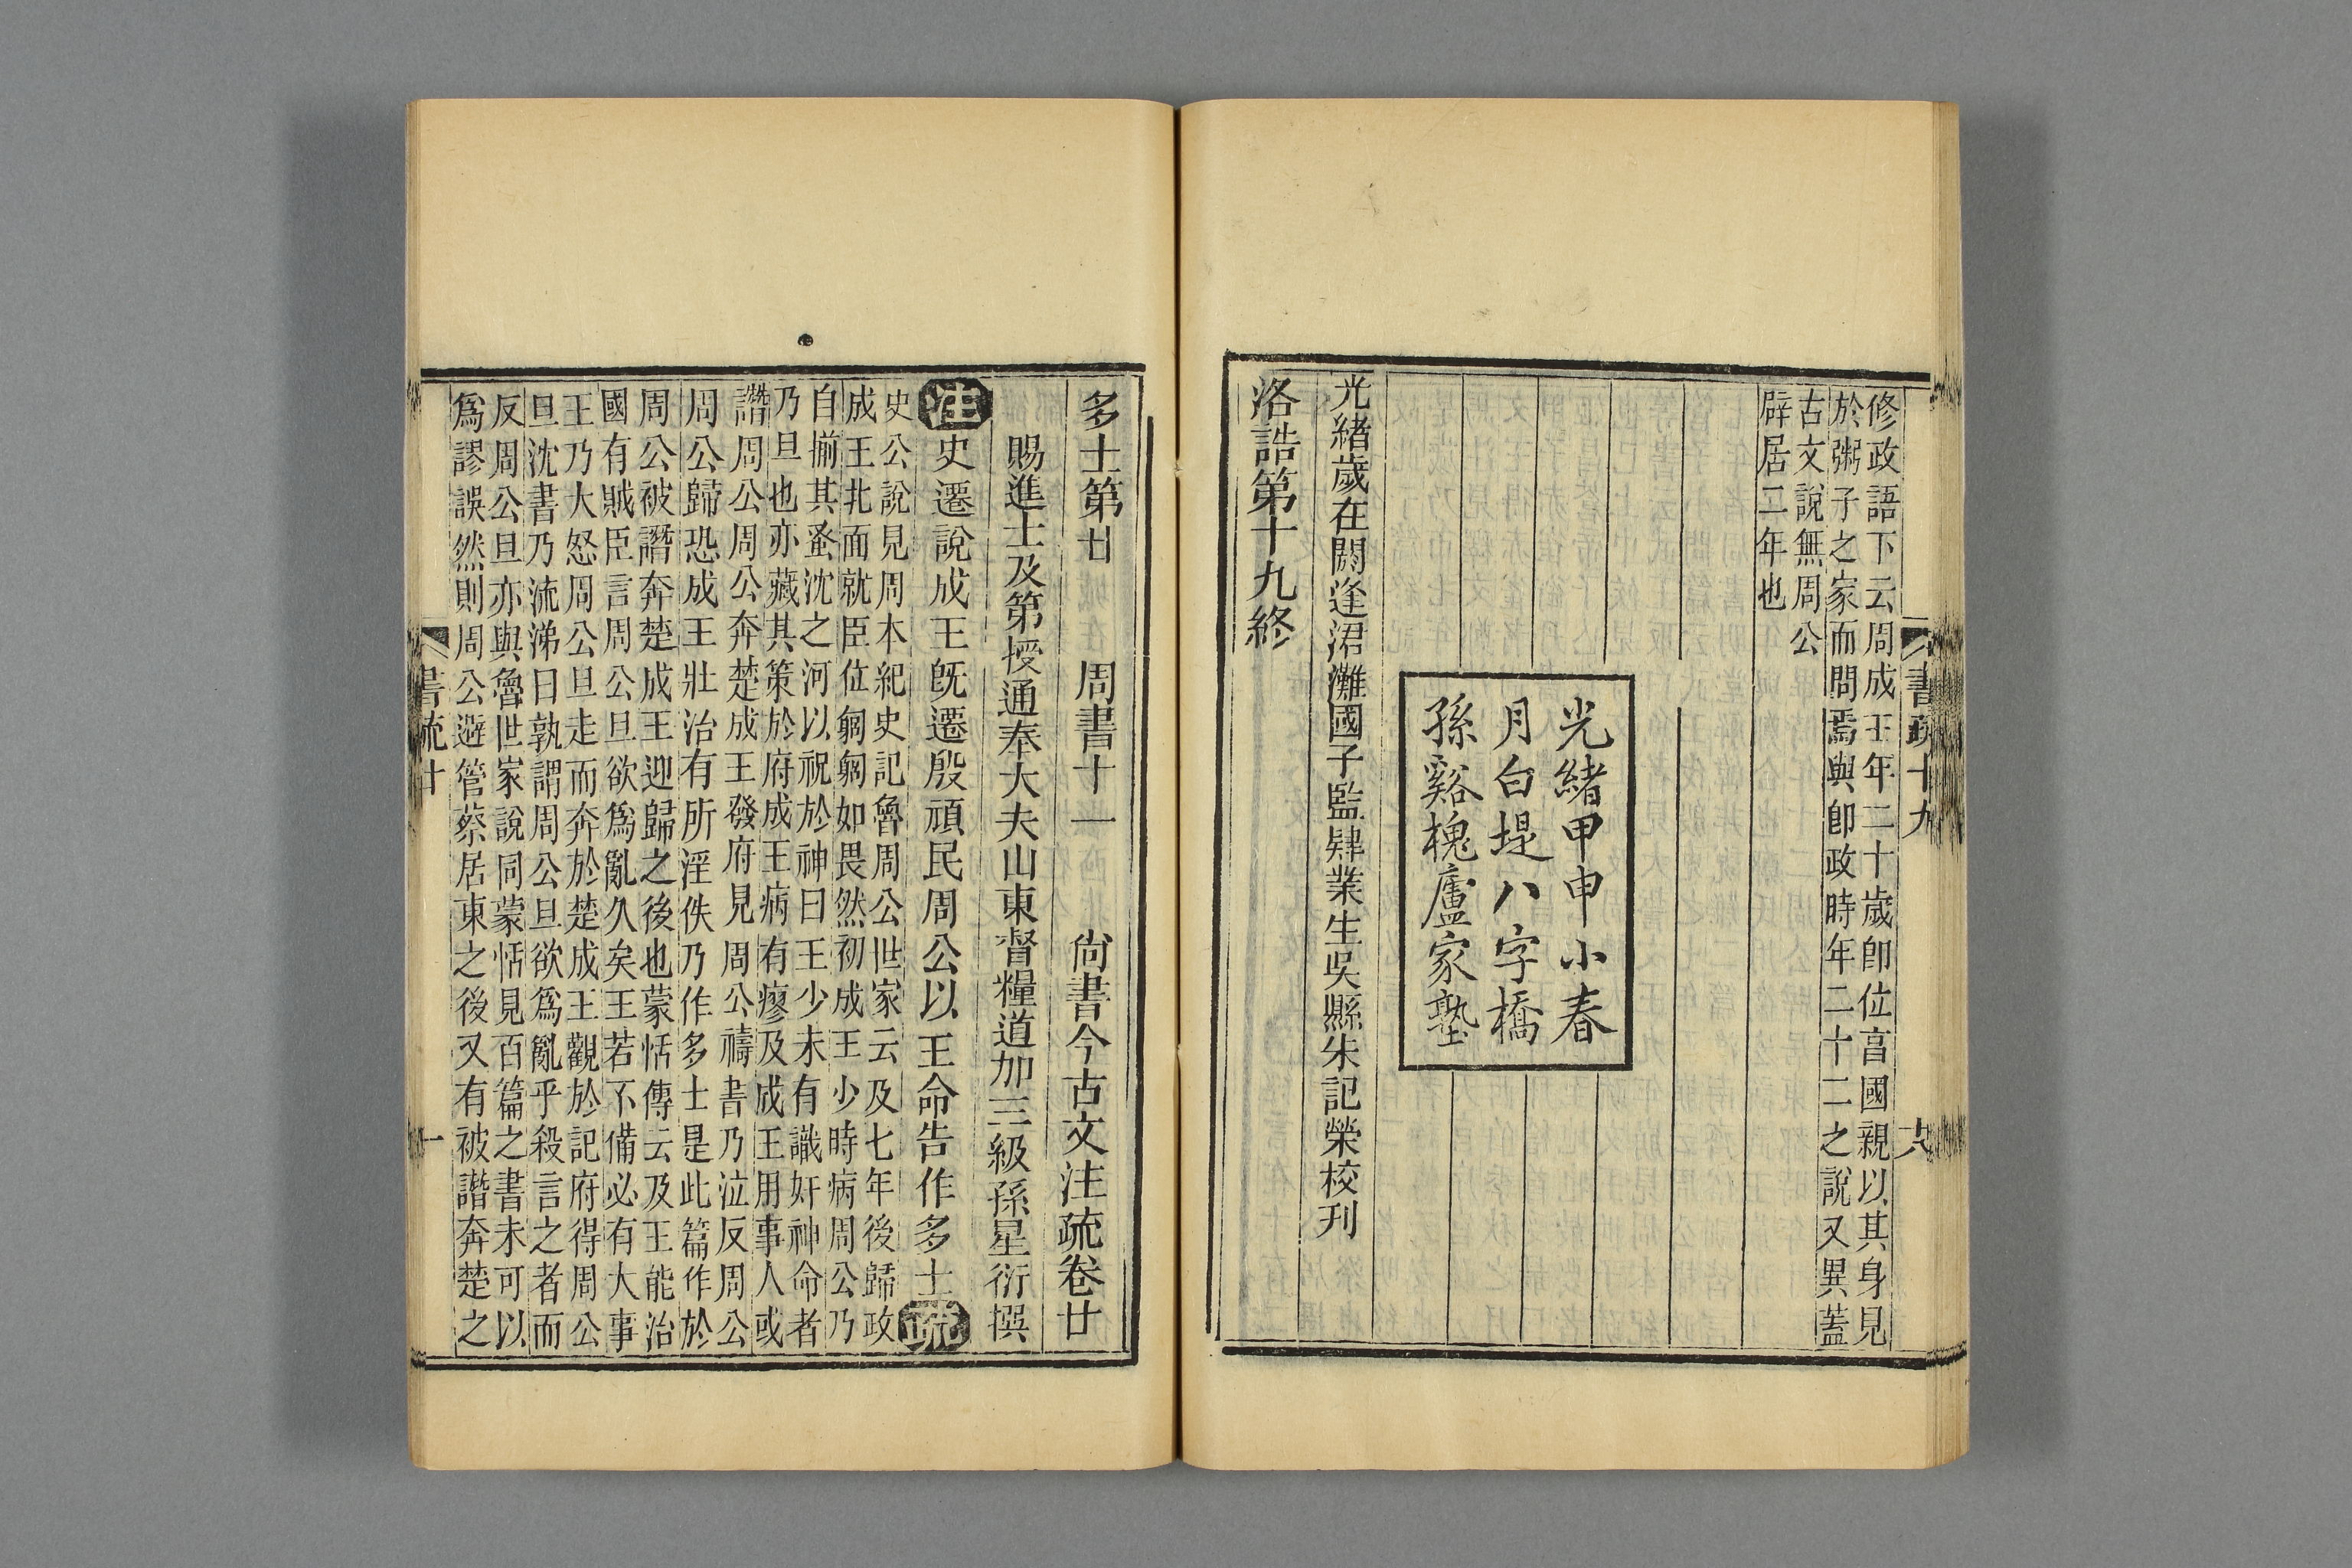 修政語下云周成王年二十歲卽位亯國親以其身見
於粥子之家而問焉與卽政時年二十二之說又異蓋
古文說無周公
辟居二年也
光緒甲申小春
月白堤八字橋
孫谿槐廬家塾
光緒歲在閼逢涒灘國子監肄業生吳縣朱記榮校刊
洛誥第十九終
書疏十九
十六
多士第廿 周書十一 尙書今古文注疏卷廿
賜進士及第授通奉大夫山東督糧道加三級孫星衍撰
注 史遷說成王旣遷殷頑民周公以王命告作多士 疏
史公說見周本紀史記魯周公世家云及七年後歸政
成王北面就臣位匑匑如畏然初成王少時病周公乃
自揃其蚤沈之河以祝於神曰王少未有識奸神命者
乃旦也亦藏其策於府成王病有瘳及成王用事人或
譖周公周公奔楚成王發府見周公禱書乃泣反周公
周公歸恐成王壯治有所淫佚乃作多士是此篇作於
周公被譖奔楚成王迎歸之後也蒙恬傳云及王能治
國有賊臣言周公旦欲爲亂久矣王若不備必有大事
王乃大怒周公旦走而奔於楚成王觀於記府得周公
旦沈書乃流涕曰孰謂周公旦欲爲亂乎殺言之者而
反周公旦亦與魯世家說同蒙恬見百篇之書未可以
爲謬誤然則周公避管蔡居東之後又有被譖奔楚之
書疏廿
一